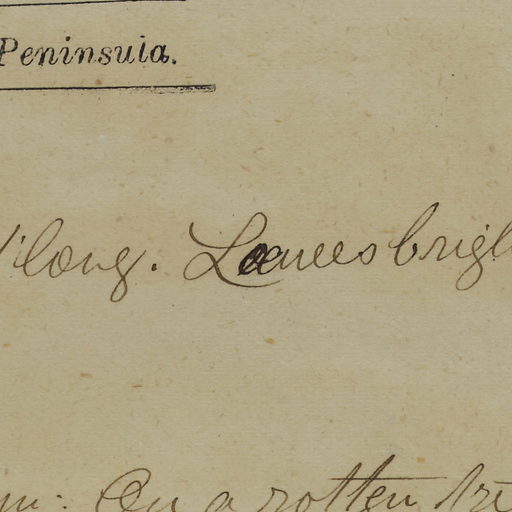 Peninsula.
1' long. Leaves brigh
m: On a rotten tre